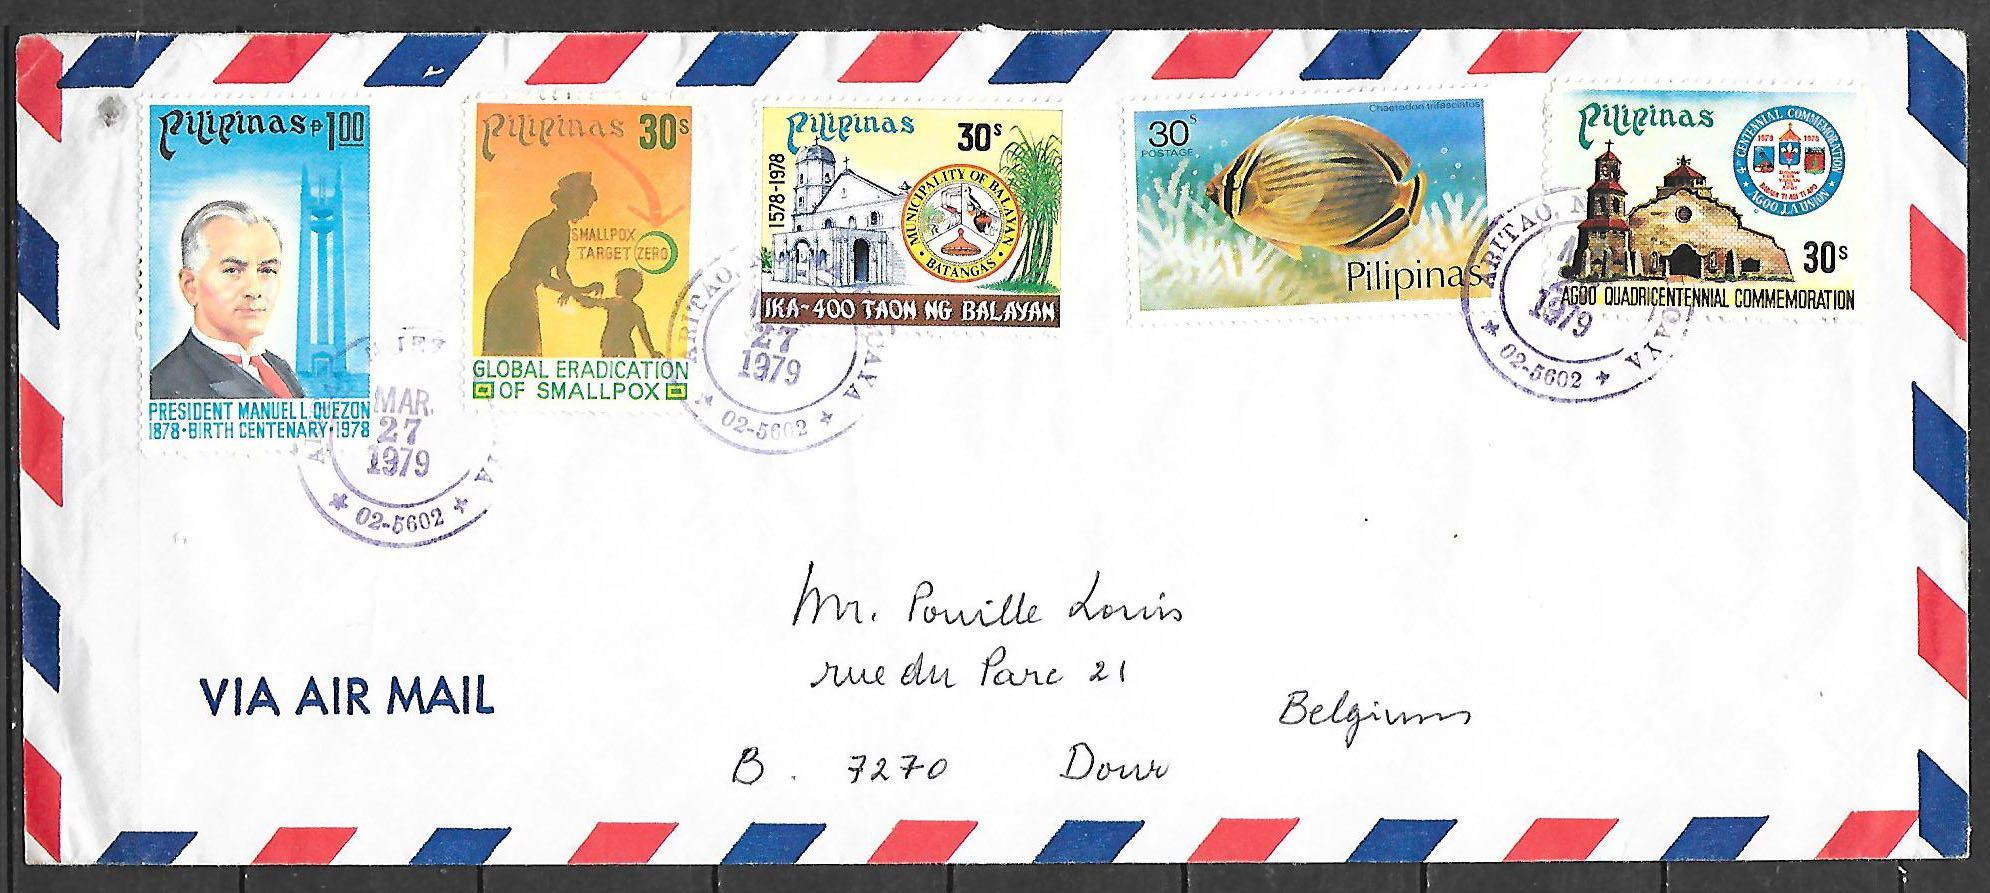 Pilipinas ₱1.00
PRESIDENT MANUEL L. QUEZON
1878 • BIRTH CENTENARY • 1978
Pilipinas 30s
SMALLPOX
TARGET ZERO
GLOBAL ERADICATION
OF SMALLPOX
Pilipinas 30s
1578-1978
MUNICIPALITY OF BALAYAN
• BATANGAS •
IKA-400 TAON NG BALAYAN
Chaetodon trifasciatus
30s
POSTAGE
Pilipinas
Pilipinas
4th CENTENNIAL COMMEMORATION
1578 1978
AGOO LA UNION
30s
AGOO QUADRICENTENNIAL COMMEMORATION
MAR.
27
1979
★ 02-5602 ★
ARITAO,
27
1979
CAYA
★ 02-5602 ★
ARITAO, N
1979
CAYA
★ 02-5602 ★
Mr. Pouille Louis
rue du Parc 21
Belgium
B. 7270 Dour
VIA AIR MAIL